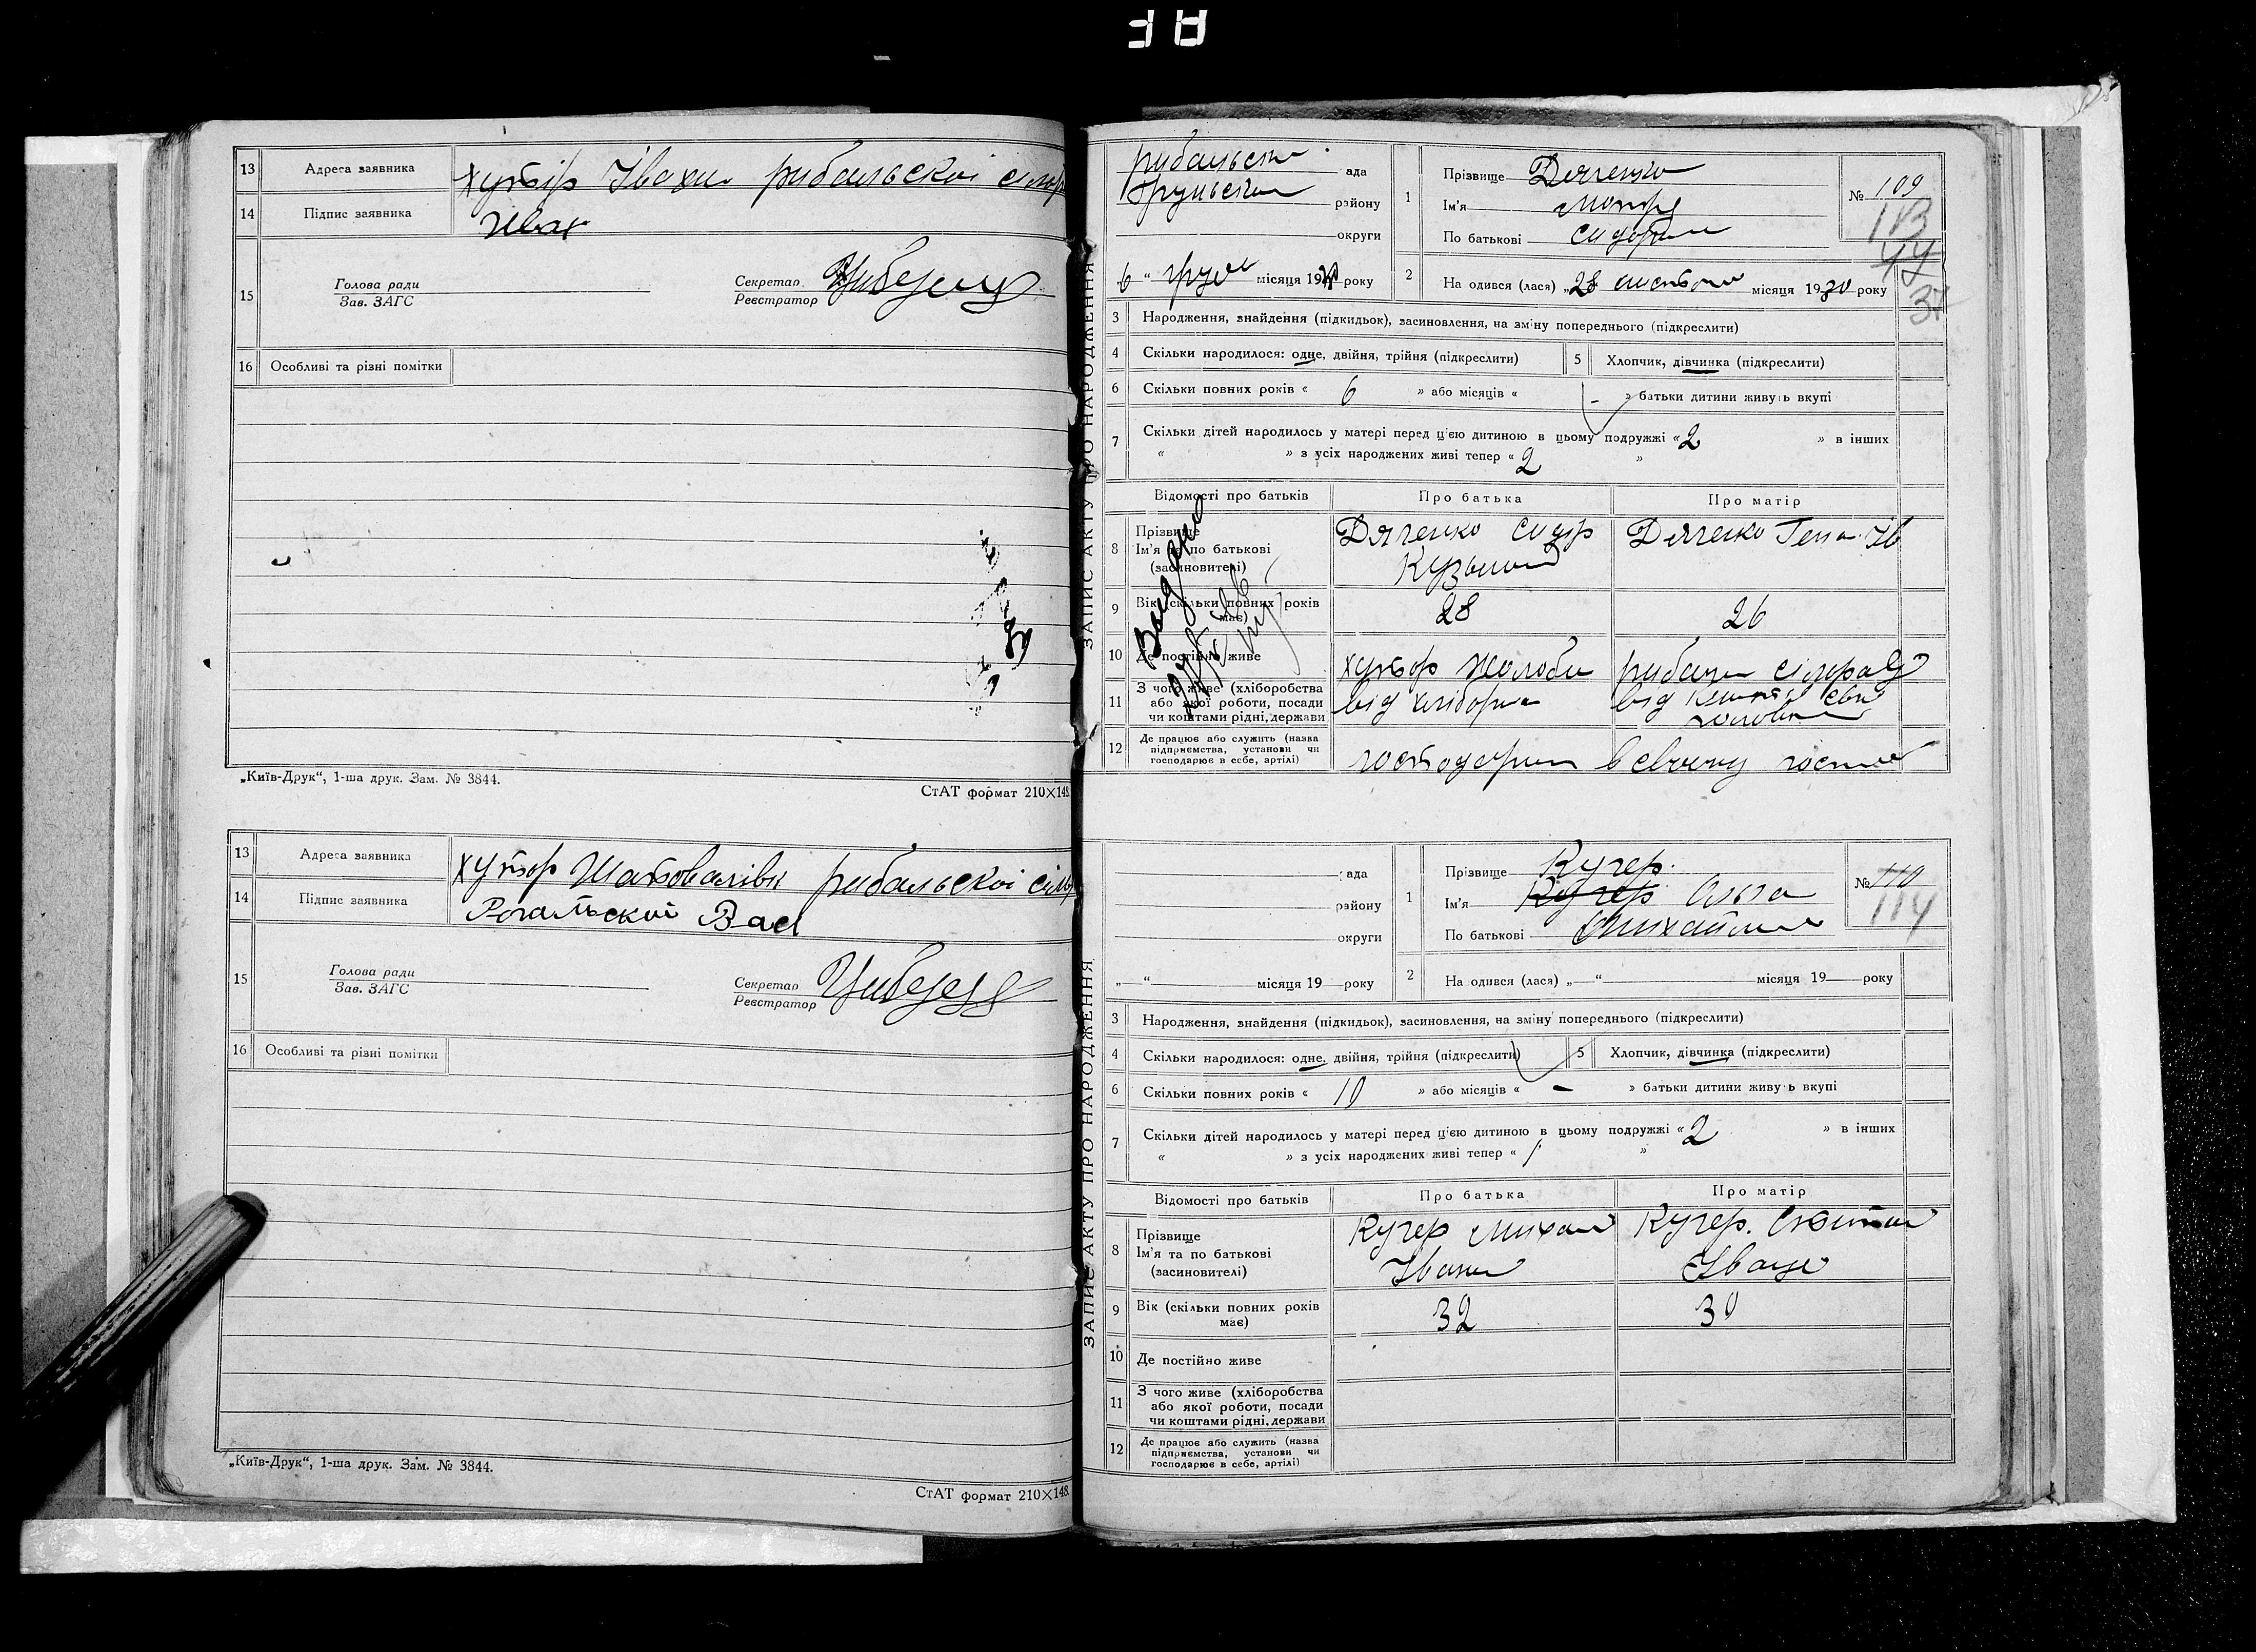 13 Адреса заявника хутір Івахи рибальскоі
14 Підпис заявника Ивах
15 Голова ради
Зав. ЗАГС
Секретар
Реєстратор
16 Особливі та різні помітки
„Київ-Друк“, 1-ша друк. Зам. № 3844.
СтАТ формат 210×148.
13 Адреса заявника хутор Шаповалівк рибальскоі сіль
14 Підпис заявника Рогальской Вас
15 Голова ради
Зав. ЗАГС
Секретар
Реєстратор
16 Особливі та різні помітки
„Київ-Друк“, 1-ша друк. Зам. № 3844.
СтАТ формат 210×148.
ЗАПИС АКТУ ПРО НАРОДЖЕННЯ
рибальска ада
району
округи
6 “ місяця 19 року
1 Прізвище Дяченко
Ім'я
По батькові
№ 109
113
2 На одився (лася) „28 листопа місяця 1930 року
3 Народження, знайдення (підкидьок), засиновлення, на зміну попереднього (підкреслити)
4 Скільки народилося: одне, двійня, трійня (підкреслити)
5 Хлопчик, дівчинка (підкреслити)
6 Скільки повних років « 6 » або місяців « - » батьки дитини живуть вкупі
7 Скільки дітей народилось у матері перед цією дитиною в цьому подружжі « 2 » в інших
« » з усіх народжених живі тепер « 2 »
Відомості про батьків Про батька Про матір
8 Прізвище
Ім'я та по батькові
(засиновителі)
Дяченко Сидр
Дяченко Ів
9 Вік (скільки повних років має) 28 26
10 Де постійно живе хутор Жолоби
11 З чого живе (хліборобства
або якої роботи, посади
чи коштами рідні, держави
від
від
12 Де працює або служить (назва
підприємства, установи чи
господарює в себе, артілі)
в своему
ЗАПИС АКТУ ПРО НАРОДЖЕННЯ
ада
району
округи
„ “ місяця 19 року
1 Прізвище Кучер
Ім'я Кучер Ольга
По батькові
№ 110
114
2 На одився (лася) „ “ місяця 19 року
3 Народження, знайдення (підкидьок), засиновлення, на зміну попереднього (підкреслити)
4 Скільки народилося: одне, двійня, трійня (підкреслити)
5 Хлопчик, дівчинка (підкреслити)
6 Скільки повних років « 10 » або місяців « - » батьки дитини живу ь вкупі
7 Скільки дітей народилось у матері перед цією дитиною в цьому подружжі « 2 » в інших
« » з усіх народжених живі тепер « / »
Відомості про батьків Про батька Про матір
8 Прізвище
Ім'я та по батькові
(засиновителі)
Кучер Михал
Кучер.
9 Вік (скільки повних років має) 32 30
10 Де постійно живе
11 З чого живе (хліборобства
або якої роботи, посади
чи коштами рідні, держави
12 Де працює або служить (назва
підприємства, установи чи
господарює в себе, артілі)